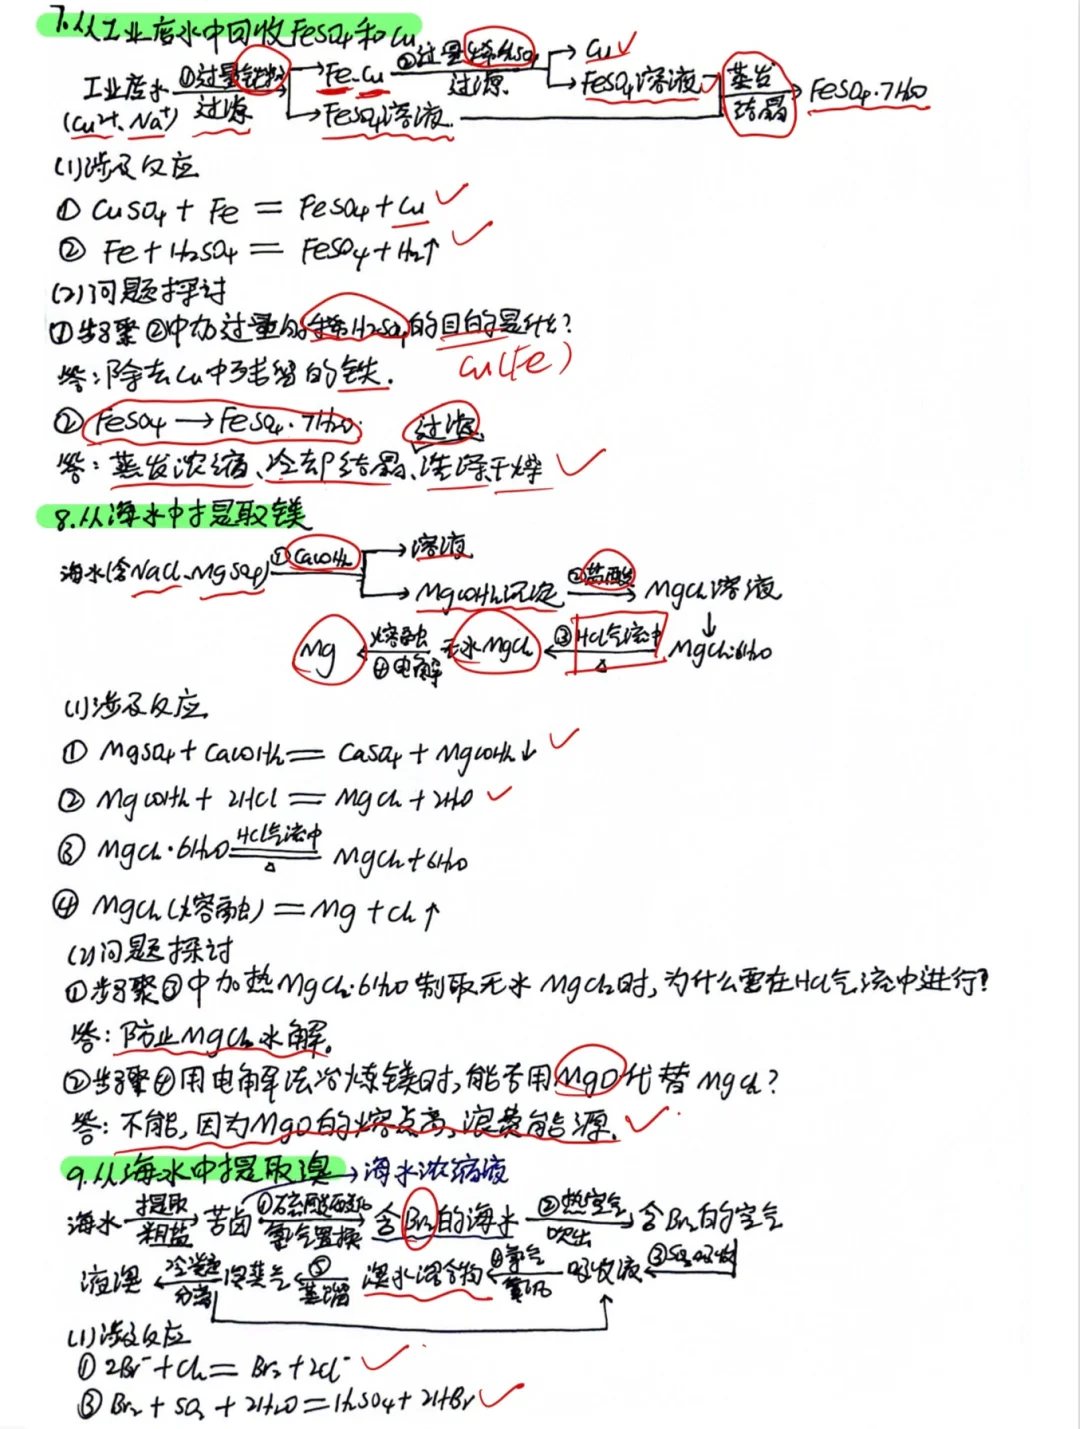 7.从工业废水中回收FeSO4和Cu
工业废水 ①过量铁粉 过滤 Fe、Cu ②过量稀H2SO4 过滤 Cu
FeSO4溶液 蒸发 结晶 FeSO4·7H2O
(Cu2+、Na+) FeSO4溶液
(1)涉及反应
① CuSO4 + Fe = FeSO4 + Cu
② Fe + H2SO4 = FeSO4 + H2↑
(2)问题探讨
①步骤②中加过量的稀H2SO4的目的是什么?
Cu(Fe)
答:除去Cu中残留的铁.
② FeSO4 → FeSO4·7H2O. 过滤、
答:蒸发浓缩、冷却结晶、洗涤干燥
8.从海水中提取镁
海水(含NaCl、MgSO4) ①Ca(OH)2 溶液
Mg(OH)2沉淀 ②盐酸 MgCl2溶液
Mg 熔融 ④电解 无水MgCl2 ③HCl气流中 △ MgCl2·6H2O
(1)涉及反应
① MgSO4 + Ca(OH)2 = CaSO4 + Mg(OH)2↓
② Mg(OH)2 + 2HCl = MgCl2 + 2H2O
③ MgCl2·6H2O HCl气流中 △ MgCl2 + 6H2O
④ MgCl2(熔融) = Mg + Cl2↑
(2)问题探讨
①步骤③中加热MgCl2·6H2O制取无水MgCl2时,为什么需在HCl气流中进行?
答:防止MgCl2水解.
②步骤④用电解法冶炼镁时,能否用MgO代替MgCl2?
答:不能,因为MgO的熔点高,浪费能源.
9.从海水中提取溴 → 海水浓缩液
海水 提取 粗盐 苦卤 ①硫酸酸化 氯气置换 含Br2的海水 ②热空气 吹出 含Br2的空气
液溴 冷凝 分离 溴蒸气 ⑤ 蒸馏 溴水混合物 ④氯气 氧化 吸收液 ③SO2吸收
(1)涉及反应
① 2Br- + Cl2 = Br2 + 2Cl-
③ Br2 + SO2 + 2H2O = H2SO4 + 2HBr